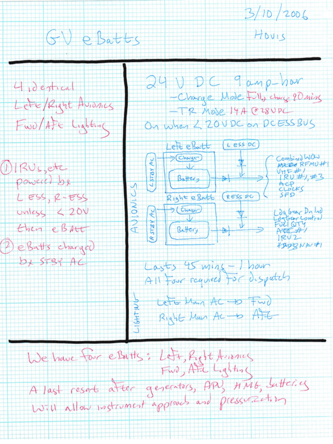 3/10/2006
GV eBatts
Hovis
4 identical
Left/Right Avionics
Fwd/Aft Lighting
① IRUs, etc
powered by
L ESS, R-ESS
unless < 20V
then eBatt
② eBatts charged
by STBY AC
24 V DC 9 amp-hour
- Charge Mode
- TR Mode 14A @ 28VDC
On when < 20VDC on DC ESS BUS
AVIONICS
Left eBatt
L ESS DC
Charger
Battery
Right eBatt
R ESS DC
Charger
Battery
IRU #1, #3
MCP
CLOCKS
IRU 2
Lasts 45 mins - 1 hour
All four required for dispatch
LIGHTING
Left Main AC → Fwd
Right Main AC → Aft
We have four eBatts: Left, Right Avionics
Fwd, Aft Lighting
A last resort after generators, APU, HMG, batteries
Will allow instrument approach and pressurization